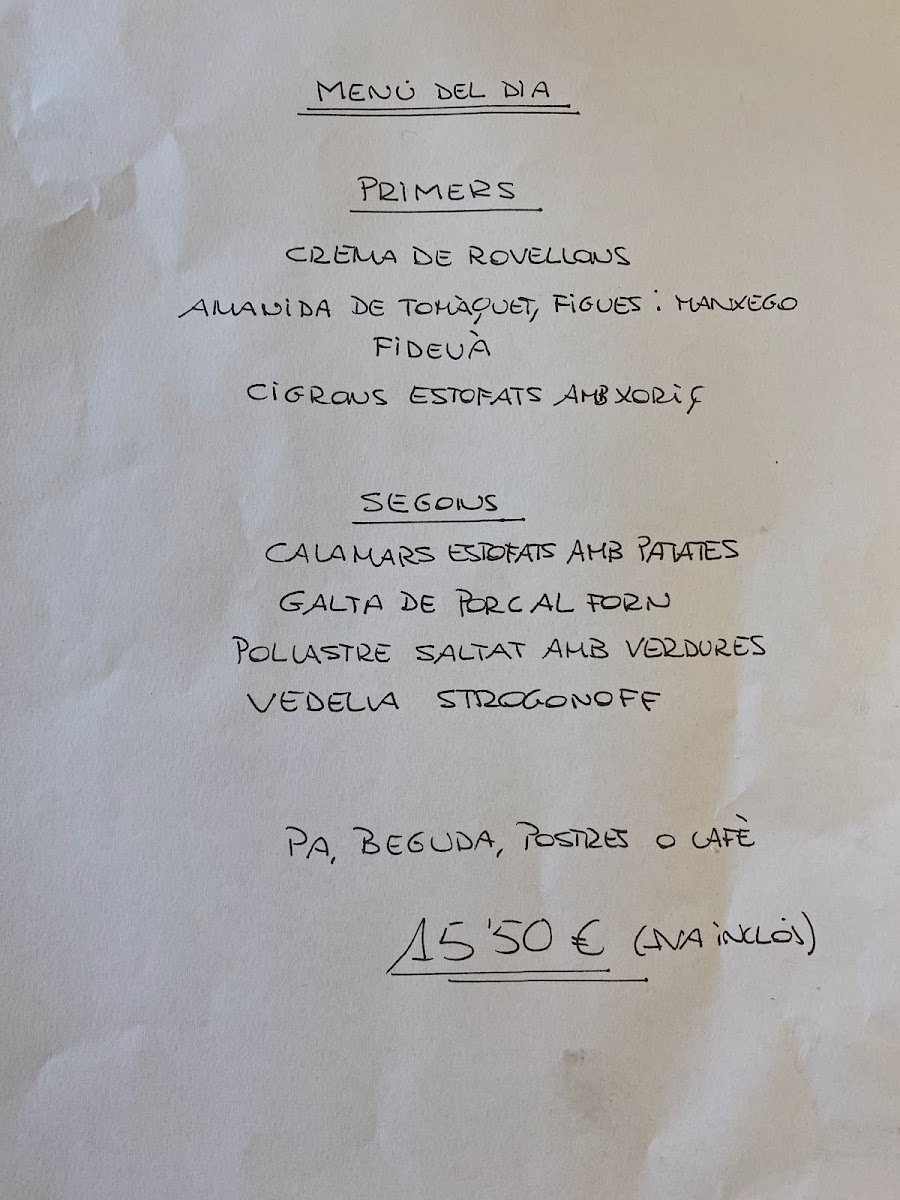 MENÚ DEL DIA
PRIMERS
CREMA DE ROVELLONS
AMANIDA DE TOMÀQUET, FIGUES i MANXEGO
FIDEUÀ
CIGRONS ESTOFATS AMB XORIÇ
SEGONS
CALAMARS ESTOFATS AMB PATATES
GALTA DE PORC AL FORN
POLLASTRE SALTAT AMB VERDURES
VEDELLA STROGONOFF
PA, BEGUDA, POSTRES O CAFÈ
15'50 € (IVA INCLÒS)